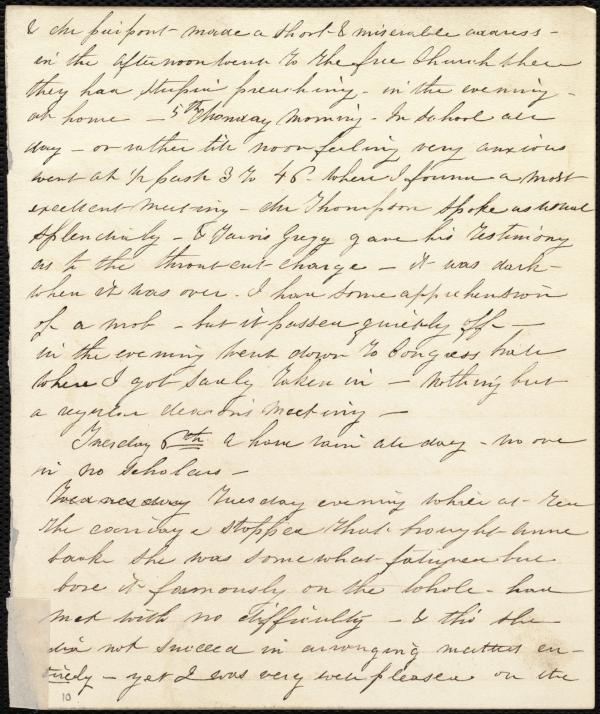 & Mr Pierpont made a short & miserable address -
in the afternoon went to the free Church there
they had stupid preaching - in the evening -
at home - 5th Monday Morning - In School all
day - or rather till noon feeling very anxious
went at 1/2 past 3 to 46 - where I found a most
excellent Meeting - Mr Thompson spoke as usual
splendidly - & Jarvis Gregg gave his testimony
as to the throat cut charge - it was dark
when it was over - I had some apprehension
of a mob - but it passed quietly off -
in the evening went down to Congress hall
where I got sadly taken in - nothing but
a regular deacons Meeting -
Tuesday 6th a hard rain all day - no one
in no Scholars -
Wednesday Tuesday evening while at tea
the carriage stopped that brought Anne
back she was somewhat fatigued but
bore it famously on the whole - had
met with no difficulty - & tho' she
did not succeed in arranging matters en-
tirely - yet I was very well pleased on the
10